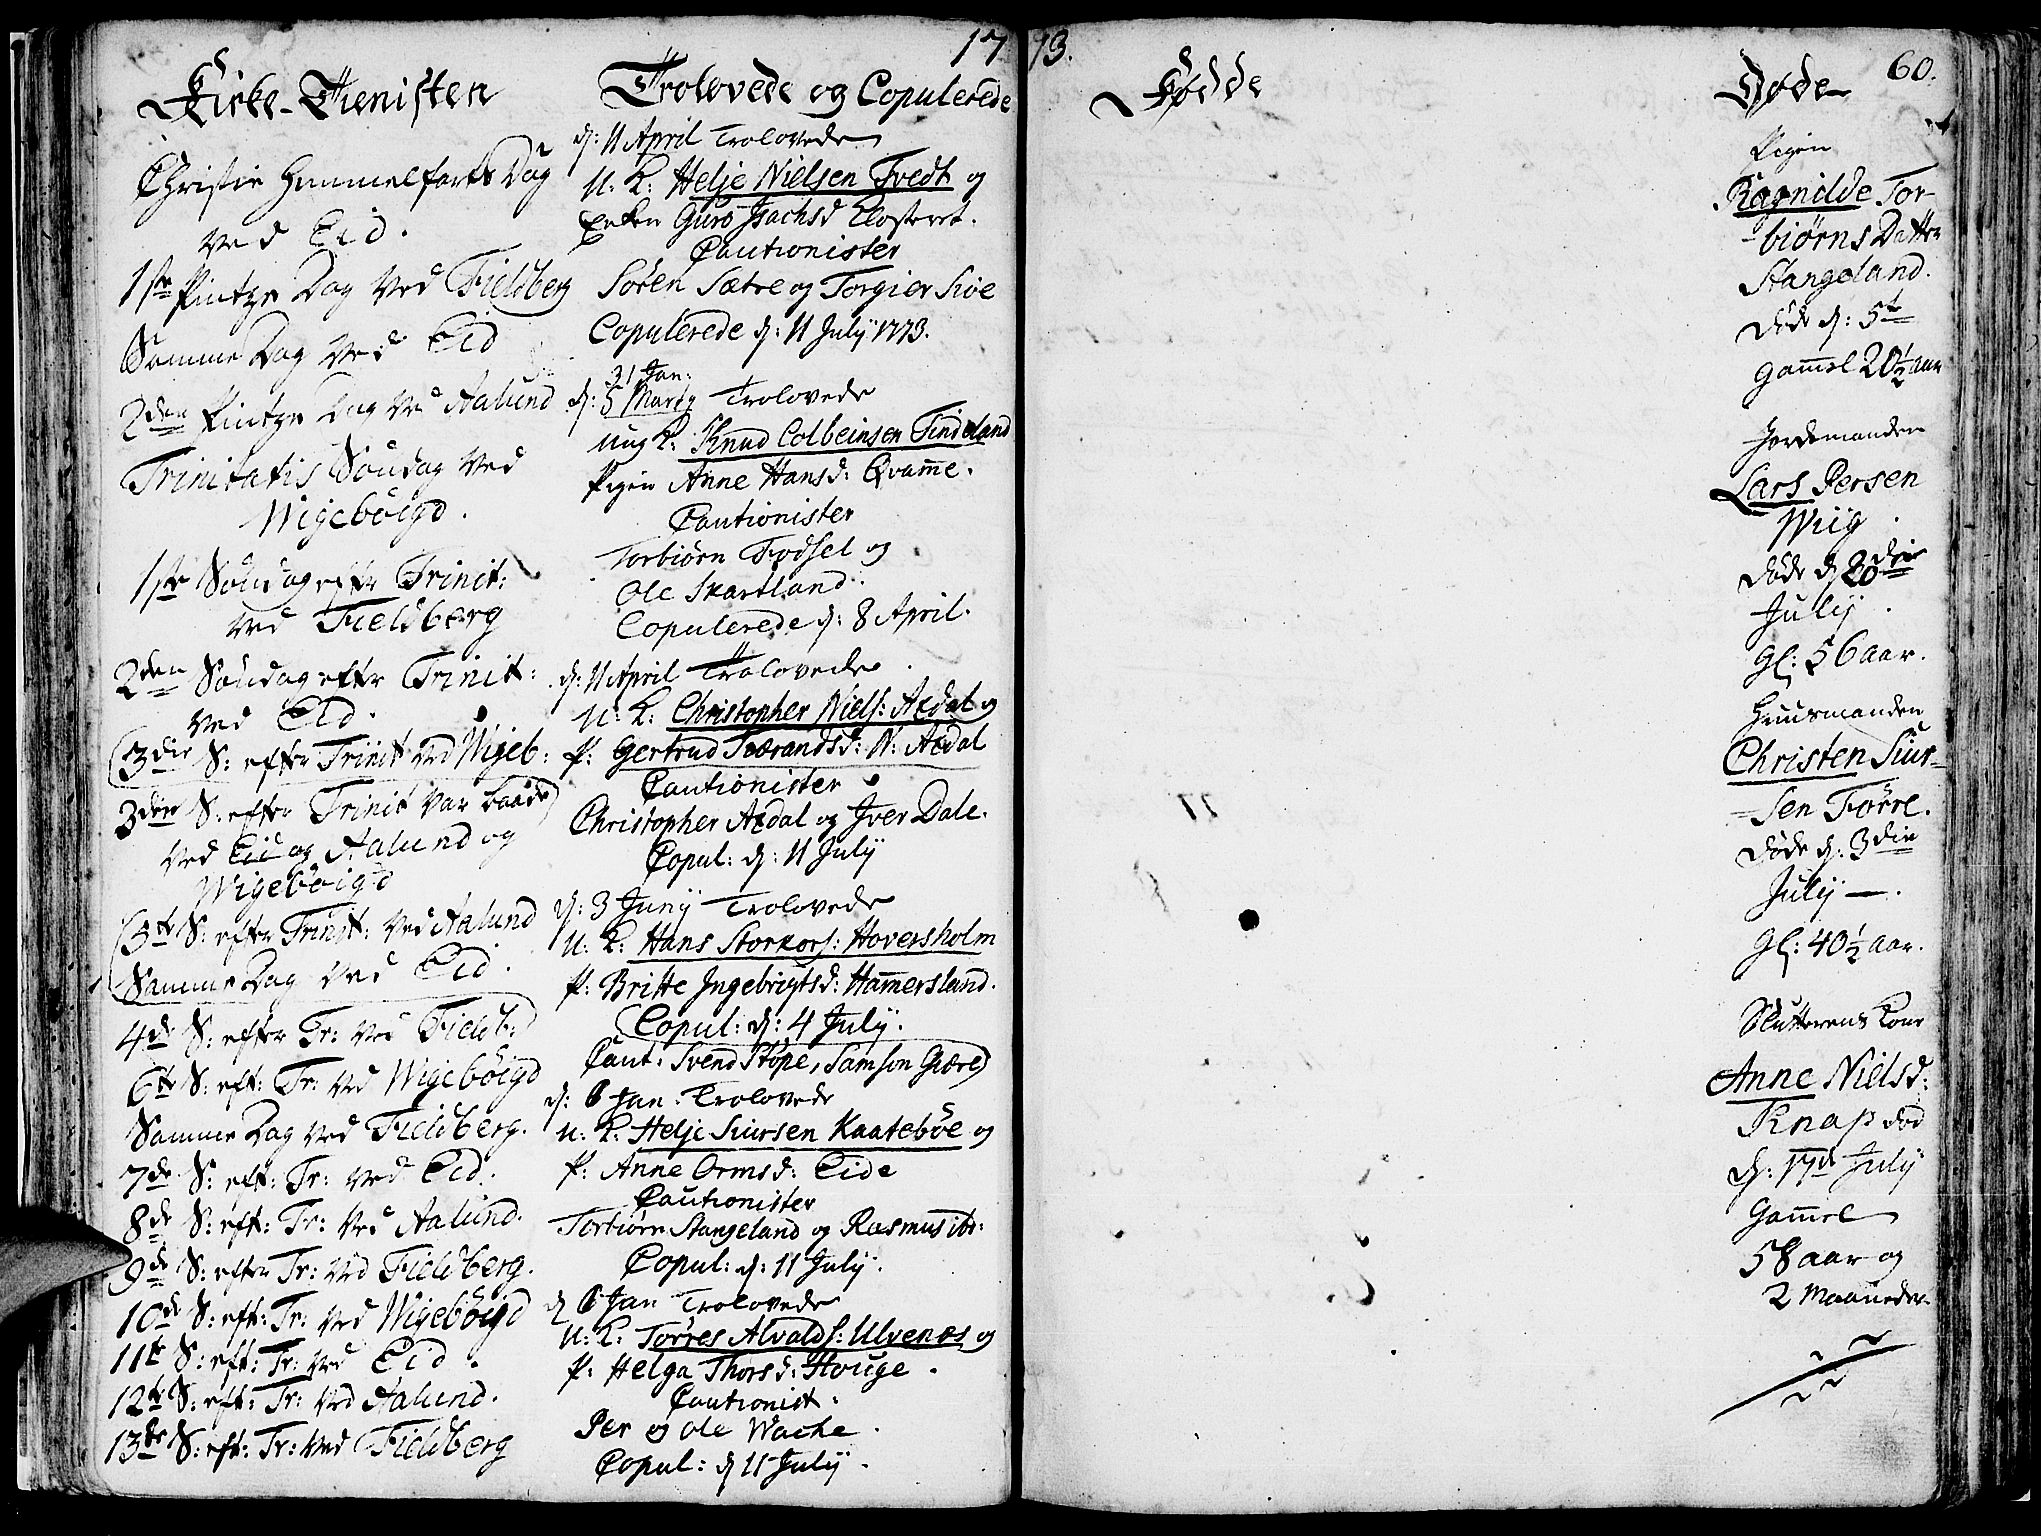 1773.
60.
Kirke-Tienisten
Christie Himmelfarts Dag
ved Eid.
1ste Pintze Dag ved Fieldberg
Samme Dag ved Eid
2den Pintze Dag ved Aalund
Trinitatis Søndag ved
Wigebøigd.
1ste Søndag efter Trinit:
ved Fieldberg
2den Søndag efter Trinit:
ved Eid.
(3die S: efter Trinit ved Wigeb:
3den S: efter Trinit var baade)
ved Eid og Aalund og
Wigebøigd
(5te S: efter Trinit: ved Aalund
Samme Dag ved Eid.
4de S: efter Tr: ved Fieldb:
6te S: eft: Tr: ved Wigebøigd
Samme Dag ved Fieldberg.
7de S: eft: Tr: ved Eid.
8de S: eft: Tr: ved Aalund.
9de S: efter Tr: ved Fieldberg.
10de S: eft: Tr: ved Wigebøigd
11te S: eft: Tr: ved Eid.
12te S: eft: Tr: ved Aalund.
13de S: eft: Tr: ved Fieldberg
Trolovede og Copulerede
d: 11 April Trolovede
U: K: Helje Nielsen Tvedt og
Enken Guro Isachsd Closteret.
Cautionister
Søren Sætre og Torgier Siøe
Copulerede d: 11 July 1773.
31 Jan:
d: 5 Marty Trolovede
ung K: Knud Colbeinsen Tindeland
Pigen Anne Hansd: Qvam̄e.
Cautionister
Torbiørn Fodsel og
Ole Skartland.
Copulerede d: 8 April.
d: 11 April Trolovede
U: K: Christopher Niels: Axdal og
P: Gertrud Tværandsd: N: Axdal
Cautionister
Christopher Axdal og Iver Dale.
Copul: d: 11 July
d: 3 Juny Trolovede
U: K: Hans Storkors: Hoversholm
P: Britte Ingebrigtsd: Ham̄ersland.
(Copul: d: 4 July.
Caut: Svend Støpe, Samson Giære)
d: 6 Jan: Trolovede
U: K: Helje Siursen Kaatebøe og
P: Anne Ormsd: Eide
Cautionister
Torbiørn Stangeland og Rasmus ibr:
Copul: d: 11 July.
d 6 Jan Trolovede
U: K: Torres Alvalds: Ulvenes og
P: Helga Thorsd: Houge.
Cautionist:
Per og Ole Wache.
Copul: d 11 July.
Fødde
Døde
Pigen
Ragnilde Tor-
-biørns Datter
Stangeland.
døde d: 5te
gam̄el 20½ aar
Jordemanden
Lars Persen
Wiig.
døde d 20die
July.
Gl: 56 aar.
Huusmanden
Christen Siur=
=sen Førre.
døde d: 3die
July—.
Gl: 40½ aar.
Slutterens Kone
Anne Nielsd:
Knap død
d: 17de July
Gam̄el
58 aar og
2 Maaneder